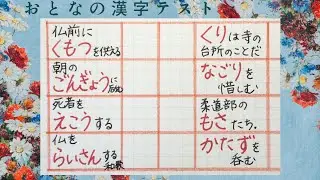 おとなの漢字テスト
仏前に
くもつを供える
朝の
ごんぎょうに
死者を
えこうする
仏を
らいさんする
くりは寺の
台所のことだ
なごりを
惜しむ
柔道部の
もさたち.
かたずを
呑む